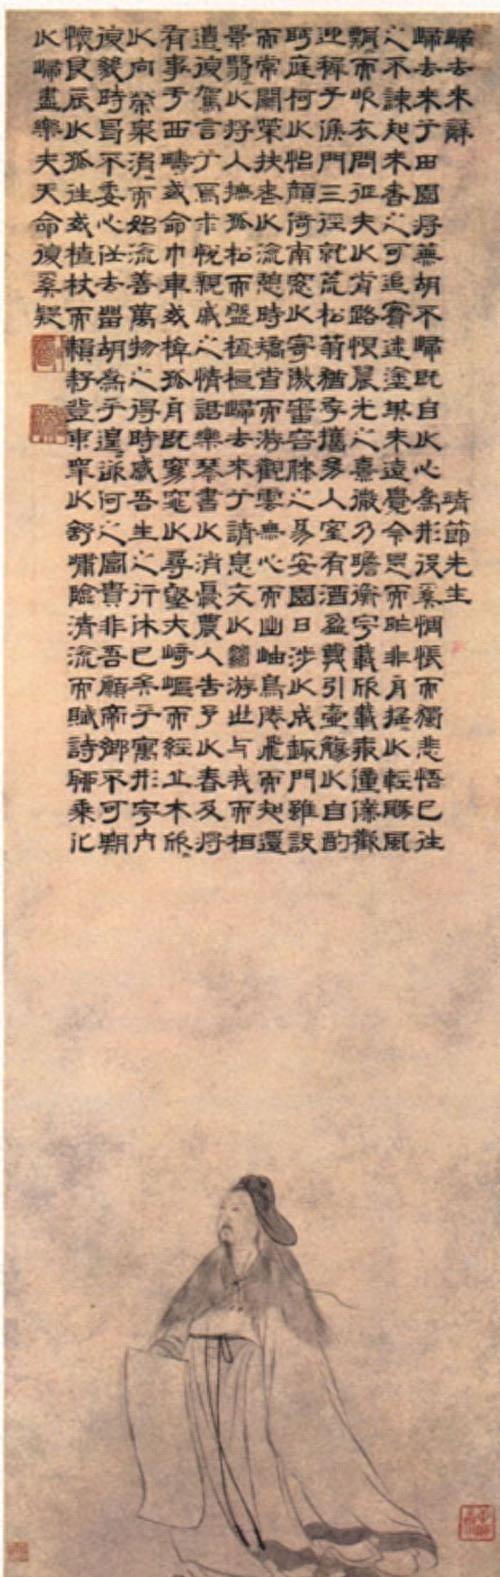 歸去來辭 靖節先生
歸去來兮田園將蕪胡不歸既自以心為形役奚惆悵而獨悲悟已往
之不諫知來者之可追實迷塗其未遠覺今是而昨非舟搖以輕颺風
飄而吹衣問征夫以前路恨晨光之熹微乃瞻衡宇載欣載奔僮僕歡
迎稚子候門三徑就荒松菊猶存攜幼入室有酒盈樽引壺觴以自酌
眄庭柯以怡顏倚南窓以寄傲審容膝之易安園日涉以成趣門雖設
而常關策扶老以流憩時矯首而游觀雲無心而出岫鳥倦飛而知還
景翳以將入撫孤松而盤桓歸去來兮請息交以絕游世与我而相
遺復駕言兮焉求悅親戚之情話樂琴書以消憂農人告予以春及將
有事于西疇或命巾車或棹孤舟既窈窕以尋壑亦崎嶇而經丘木欣
以向榮泉涓而始流善萬物之得時感吾生之行休已矣乎寓形宇內
復幾時曷不委心任去留胡為乎遑欲何之富貴非吾願帝鄉不可期
懷良辰以孤往或植杖而耘耔登東皋以舒嘯臨清流而賦詩聊乘化
以歸盡樂夫天命復奚疑